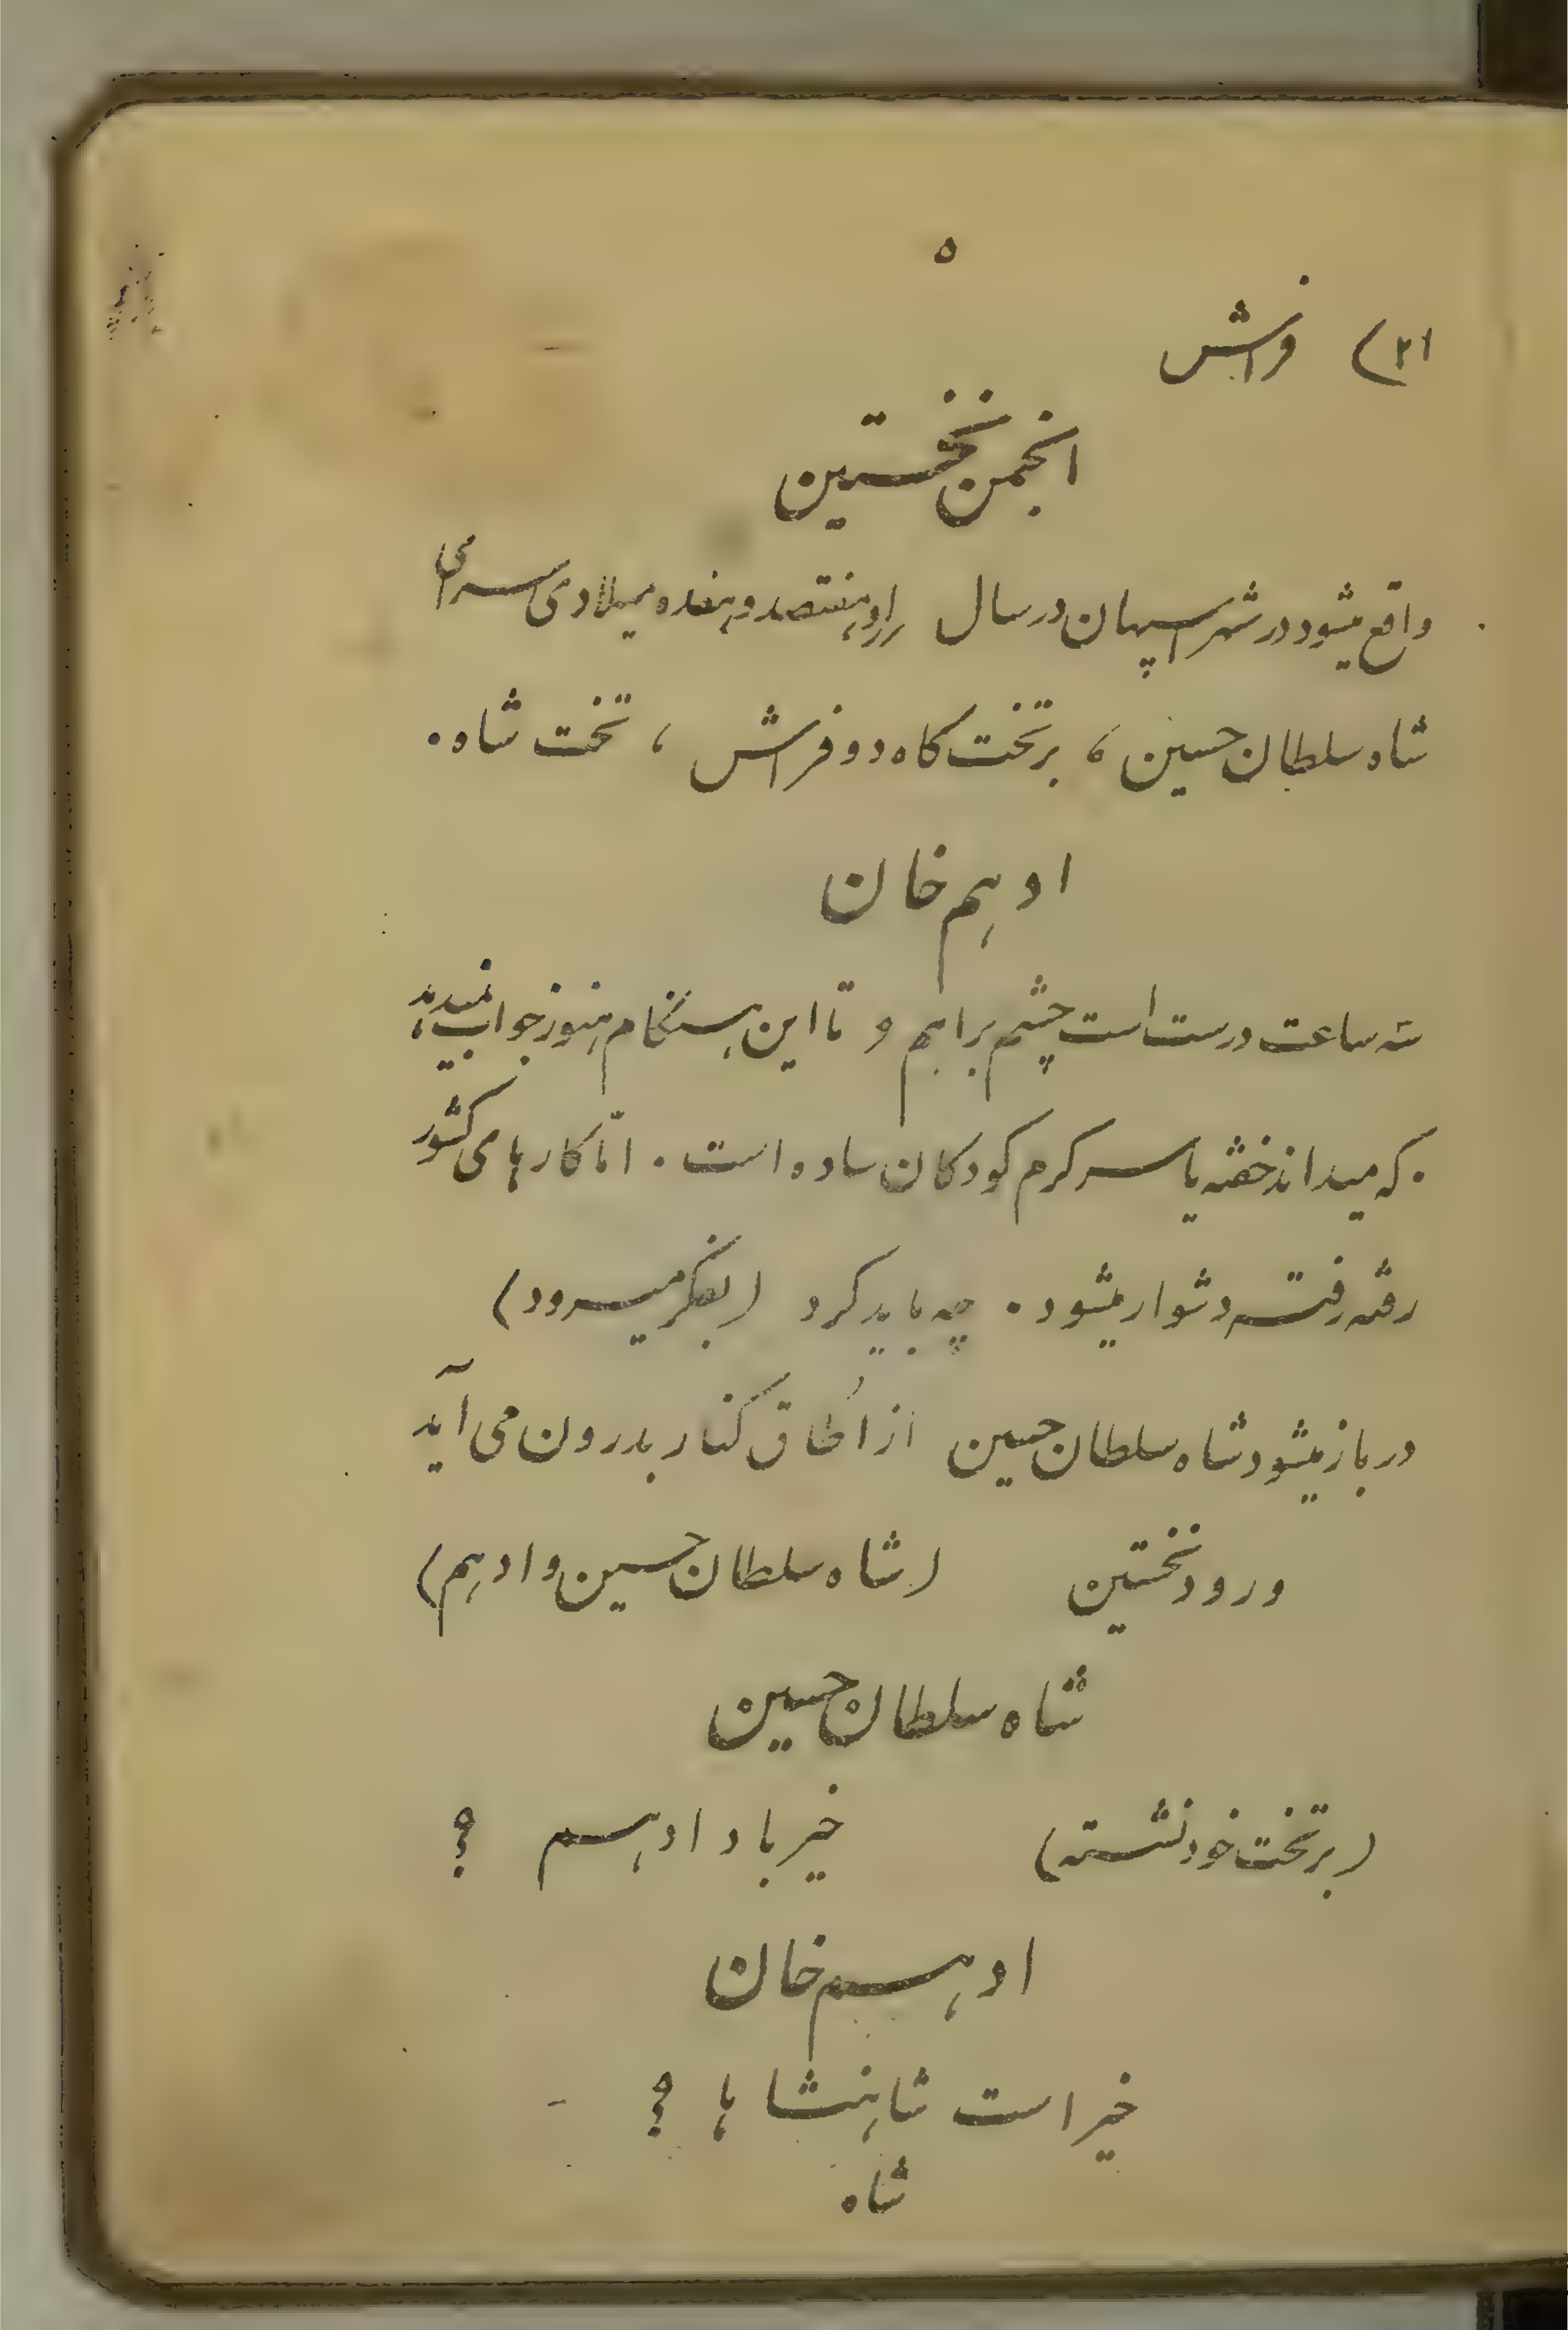 ۵
۲۱) فراش
انجمن نخستین
واقع میشود در شهر اسپهان در سال هفتصد و هفده میلادی سرای
شاه سلطان حسین ، بر تختگاه دو فراش ، تخت شاه .
ادهم خان
سه ساعت درست است چشم براهم و تا این هنگام هنوز جواب نمیدهد
. که میداند خفته یا سرگرم کودکان ساده است . امّا کارهای کشور
رفته رفته دشوار میشود . چه باید کرد (بفکر میرود)
در باز میشود شاه سلطان حسین از اُطاق کنار بدرون می آید
ورود نخستین (شاه سلطان حسین و ادهم)
شاه سلطان حسین
(بر تخت خود نشسته) خیر باد ادهم ؟
ادهم خان
خیر است شاهنشاها ؟
شاه